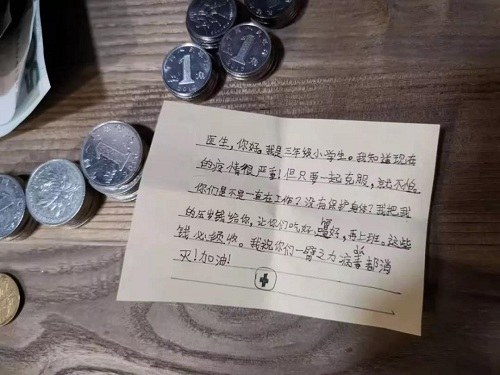 1
1
1
1
医生，你好，我是三年级小学生。我知道现在
的疫情很严重！但只要一起克服，就不怕
你们是不是一直在工作？没有保护身体？我把我
的压岁钱给你，让你们吃好，睡好，再上班。这些
钱必须收。我祝你们一臂之力病毒都消
灭！加油！